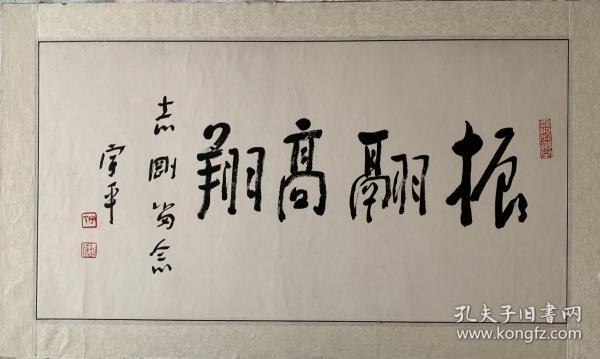 振翮高翔
志剛留念
宇平
孔夫子旧书网
www.kongfz.com